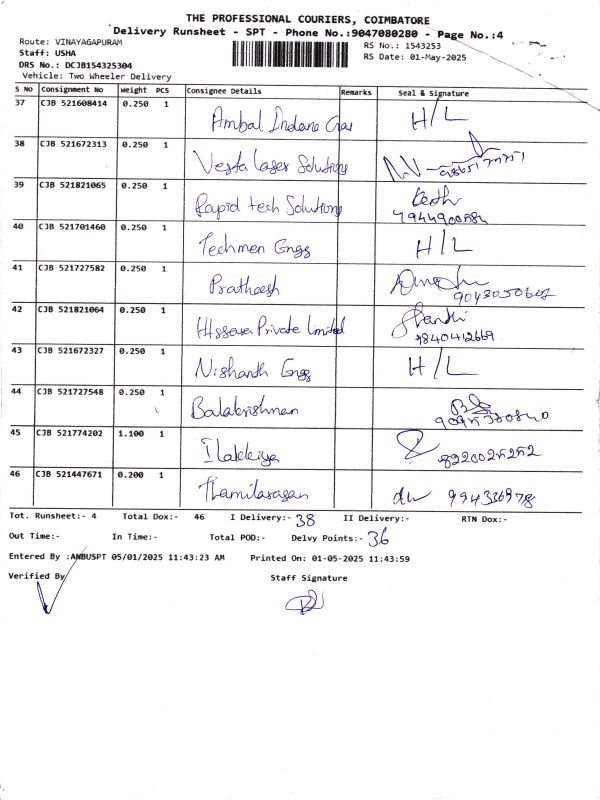 THE PROFESSIONAL COURIERS, COIMBATORE
Delivery Runsheet - SPT - Phone No.:9047080280 - Page No.:4
Route: VINAYAGAPURAM
RS No.: 1543253
Staff: USHA
RS Date: 01-May-2025
DRS No.: DCJB154325304
Vehicle: Two Wheeler Delivery
S No Consignment No Weight PCS Consignee Details Remarks Seal & Signature
37 CJB 521608414 0.250 1 Ambal Indane Gas H/L
38 CJB 521672313 0.250 1 Vesta Laser Solutions
39 CJB 521821065 0.250 1 Rapid tech Solutions
40 CJB 521701460 0.250 1 Techmen Engg H/L
41 CJB 521727582 0.250 1 Pratheesh
42 CJB 521821064 0.250 1 Private Limited 9840412669
43 CJB 521672327 0.250 1 Nishanth Engg H/L
44 CJB 521727548 0.250 1 Balakrishnan
45 CJB 521774202 1.100 1 Ilakkiya 8220025252
46 CJB 521447671 0.200 1 Thamilarasan
Tot. Runsheet:- 4 Total Dox:- 46 I Delivery:- 38 II Delivery:- RTN Dox:-
Out Time:- In Time:- Total POD:- Delvy Points:- 36
Entered By :ANBUSPT 05/01/2025 11:43:23 AM Printed On: 01-05-2025 11:43:59
Verified By Staff Signature